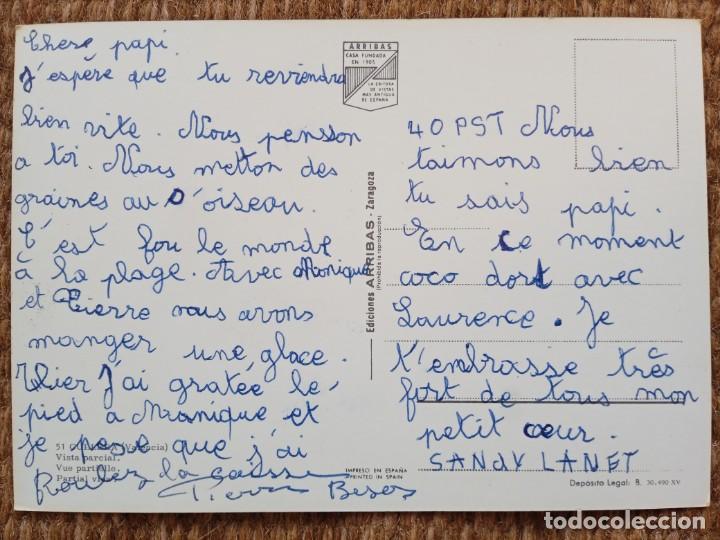 Chere papi.
J'espère que tu reviendra
bien vite. Nous pensson
a toi. Nous metton des
graines au D'oiseau.
C'est fou le monde
à la plage. Avec Monique
et Pierre nous avons
manger une glace.
Hier J'ai gratée le
pied a Monique et
je pese que j'ai
la
Pierre
51 (Valencia)
Vista parcial.
Vue partielle.
Partial
ARRIBAS
CASA FUNDADA
EN 1905
LA EDITORA
DE VISTAS
MAS ANTIGUA
DE ESPAÑA
Ediciones ARRIBAS - Zaragoza
(Prohibida la reproducción)
IMPRESO EN ESPAÑA
PRINTED IN SPAIN
40 PST Nous
taimons bien
tu sais papi.
En ce moment
coco dort avec
Laurence. Je
t'embrasse très
fort de tous mon
petit cœur.
SANDY LANET
Depósito Legal: B. 30.490 XV
todocoleccion.net